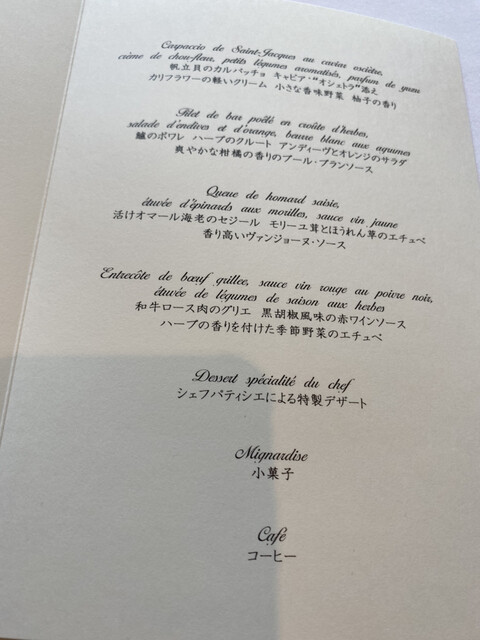 Carpaccio de Saint-Jacques au caviar osciètre,
crème de chou-fleur, petits légumes aromatisés, parfum de yuzu
帆立貝のカルパッチョ キャビア・“オシェトラ”添え
カリフラワーの軽いクリーム 小さな香味野菜 柚子の香り
Filet de bar poêlé en croûte d'herbes,
salade d'endives et d'orange, beurre blanc aux agumes
鱸のポワレ ハーブのクルート アンディーヴとオレンジのサラダ
爽やかな柑橘の香りのブール・ブランソース
Queue de homard saisie,
étuvée d'épinards aux morilles, sauce vin jaune
活けオマール海老のセジール モリーユ茸とほうれん草のエチュベ
香り高いヴァンジョーヌ・ソース
Entrecôte de bœuf grillée, sauce vin rouge au poivre noir,
étuvée de légumes de saison aux herbes
和牛ロース肉のグリエ 黒胡椒風味の赤ワインソース
ハーブの香りを付けた季節野菜のエチュベ
Dessert spécialité du chef
シェフパティシエによる特製デザート
Mignardise
小菓子
Café
コーヒー